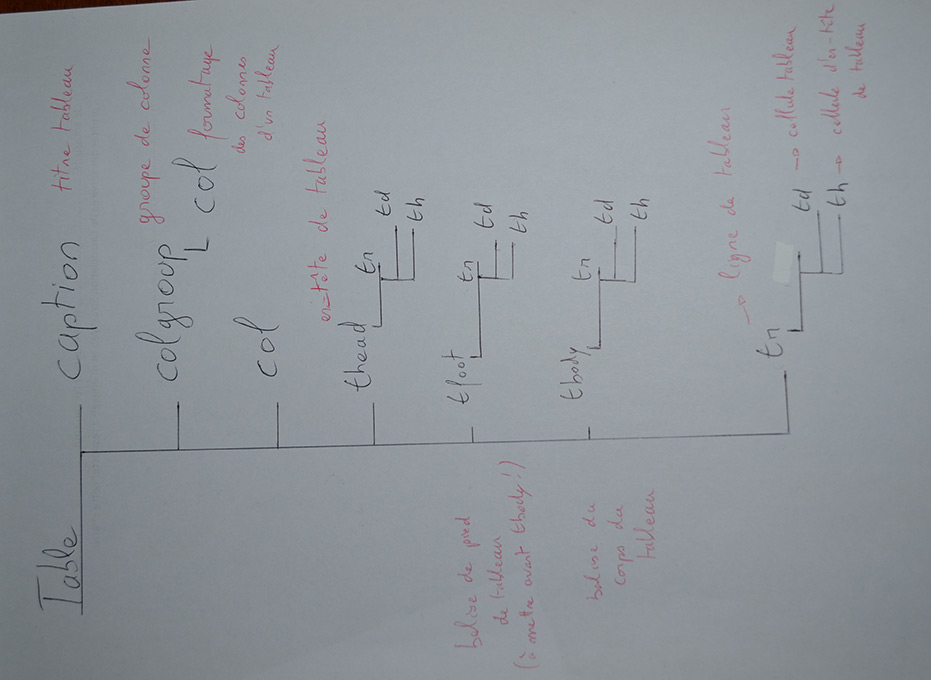 Table
caption
titre tableau
colgroup
groupe de colonne
col
formatage
des colonnes
d'un tableau
col
thead
en-tête de tableau
tr
td
th
tfoot
tr
td
th
balise de pied
de tableau
(à metre avant tbody!)
tbody
tr
td
th
balise du
corps du
tableau
tr
→ ligne de tableau
td → cellule tableau
th → cellule d'en-tête
de tableau